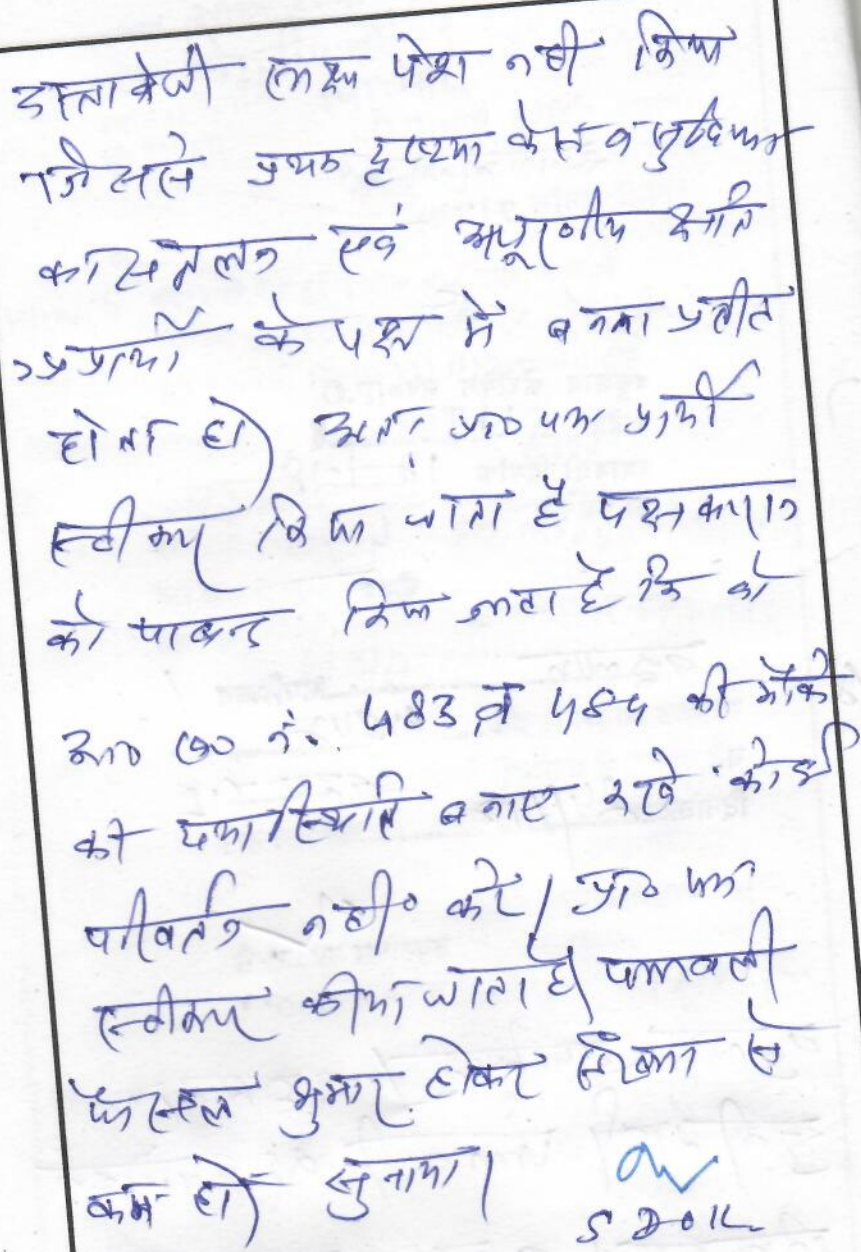 दस्तावेजी साक्ष्य पेश नहीं किया
जिससे प्रथम दृष्टया केस व सुविधा
का संतुलन एवं अपूरणीय क्षति
अप्रार्थी के पक्ष में बनना प्रतीत
होता हो। अतः प्रा० पत्र प्रार्थी
स्वीकार किया जाता है पक्षकारान
को पाबन्द किया जाता है कि वो
आ० ख० नं. 483 व 484 की मौके
की यथास्थिति बनाए रखे कोई
परिवर्तन नहीं करे। प्रा० पत्र
स्वीकार कीया जाता है। पत्रावली
फैसल शुमार होकर संख्या से
कम हो। सुनाया।